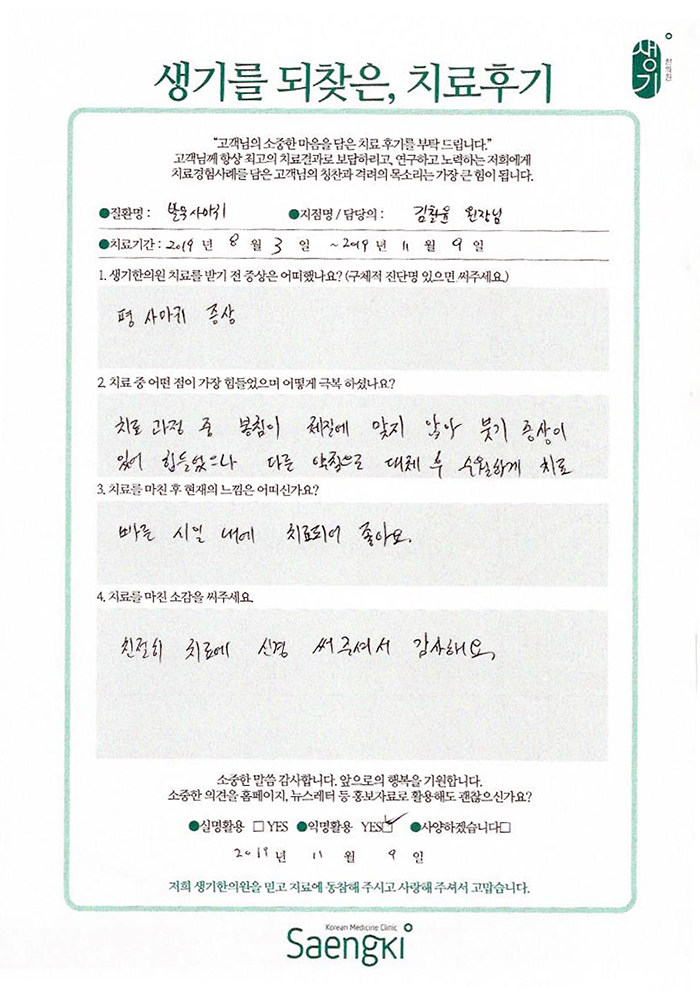 생기
한의원
생기를 되찾은, 치료후기
"고객님의 소중한 마음을 담은 치료 후기를 부탁 드립니다."
고객님께 항상 최고의 치료결과로 보답하리고, 연구하고 노력하는 저희에게
치료경험사례를 담은 고객님의 칭찬과 격려의 목소리는 가장 큰 힘이 됩니다.
●질환명 : 발 사마귀 ●지점명 / 담당의 : 원장님
●치료기간 : 2019 년 8 월 3 일 ~ 2019 년 11 월 9 일
1. 생기한의원 치료를 받기 전 증상은 어떠했나요? (구체적 진단명 있으면 써주세요.)
편 사마귀 증상
2. 치료 중 어떤 점이 가장 힘들었으며 어떻게 극복 하셨나요?
치료 과정 중 봉침이 체질에 맞지 않아 붓기 증상이
있어 힘들었으나 다른 약침으로 대체 후 수월하게 치료
3. 치료를 마친 후 현재의 느낌은 어떠신가요?
빠른 시일 내에 치료되어 좋아요.
4. 치료를 마친 소감을 써주세요.
친절히 치료에 신경 써주셔서 감사해요,
소중한 말씀 감사합니다. 앞으로의 행복을 기원합니다.
소중한 의견을 홈페이지, 뉴스레터 등 홍보자료로 활용해도 괜찮으신가요?
●실명활용 □ YES ●익명활용 YES☑ ●사양하겠습니다□
2019 년 11 월 9 일
저희 생기한의원을 믿고 치료에 동참해 주시고 사랑해 주셔서 고맙습니다.
Korean Medicine Clinic
Saengki